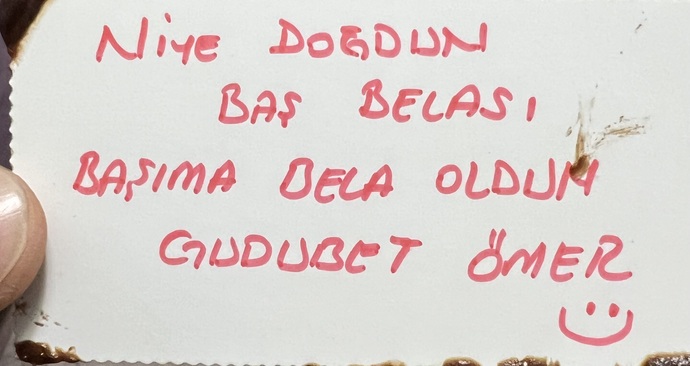 NiYE DOĞDUN
BAŞ BELASI
BAŞIMA BELA OLDUM
GUDUBET ÖMER